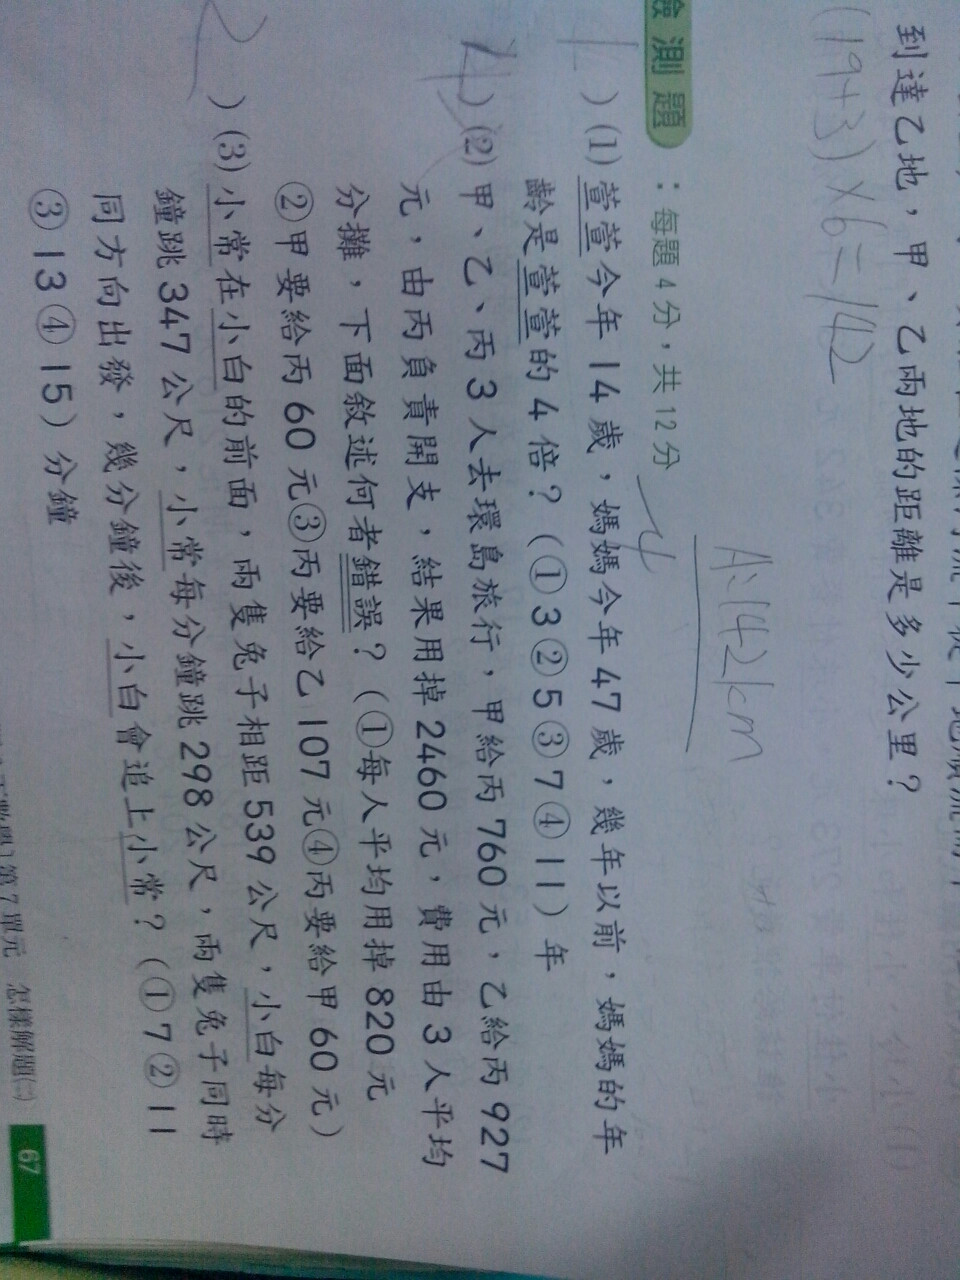 到達乙地，甲、乙兩地的距離是多少公里？
(19+3)×6=142
A:142km
測題：每題4分，共12分
( )(1)萱萱今年14歲，媽媽今年47歲，幾年以前，媽媽的年
齡是萱萱的4倍？(①3②5③7④11)年
(4)(2)甲、乙、丙3人去環島旅行，甲給丙760元，乙給丙927
元，由丙負責開支，結果用掉2460元，費用由3人平均
分攤，下面敘述何者錯誤？(①每人平均用掉820元
②甲要給丙60元③丙要給乙107元④丙要給甲60元)
(2)(3)小常在小白的前面，兩隻兔子相距539公尺，小白每分
鐘跳347公尺，小常每分鐘跳298公尺，兩隻兔子同時
同方向出發，幾分鐘後，小白會追上小常？(①7②11
③13④15)分鐘
第7單元 怎樣解題(二)
67